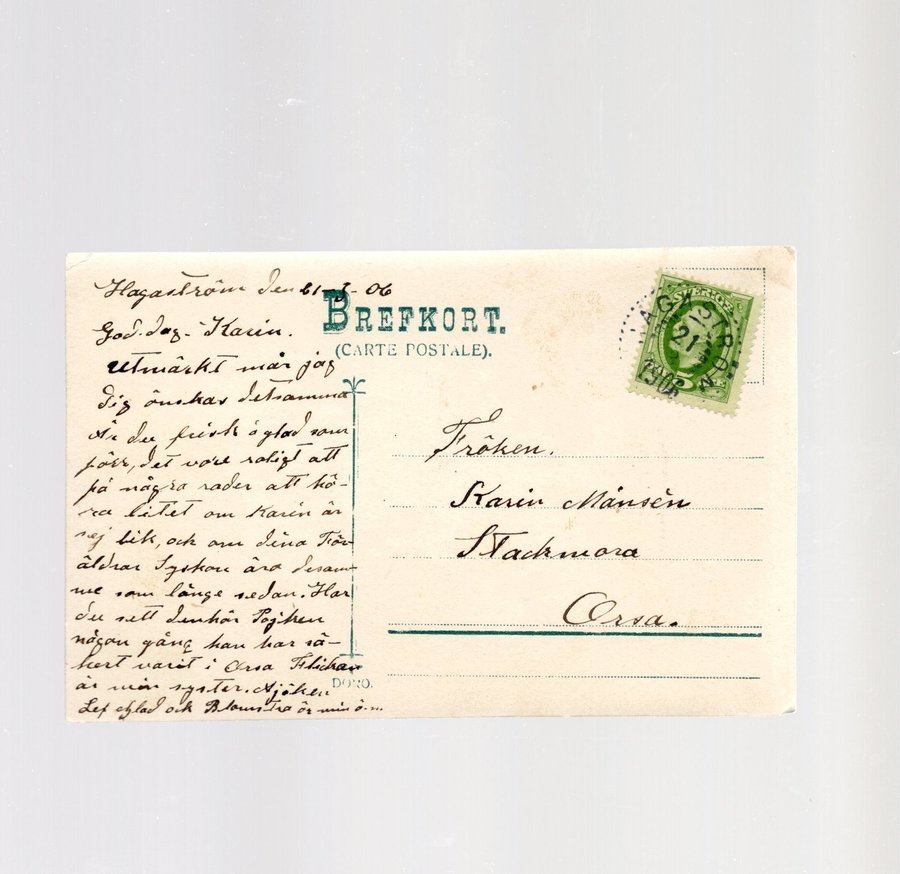 Hagaström den 21-3-06
God-dag- Karin.
Utmärkt mår jag
dig önskas detsamma
Är du frisk o glad som
förr, det vore roligt att
på några rader att hö-
ra litet om Karin är
sej lik, och om dina För-
äldrar Syskon äro desam-
me som länge sedan. Har
du sett denhär Pojken
någon gång han har sä-
kert varit i Orsa Flickan
är min syster.
Lef Glad och Blomstra är min ö...
BREFKORT.
(CARTE POSTALE).
DORO.
SVERIGE
5
HAGASTRÖM
21
1906
Fröken.
Karin Månsèn
Stackmora
Orsa.